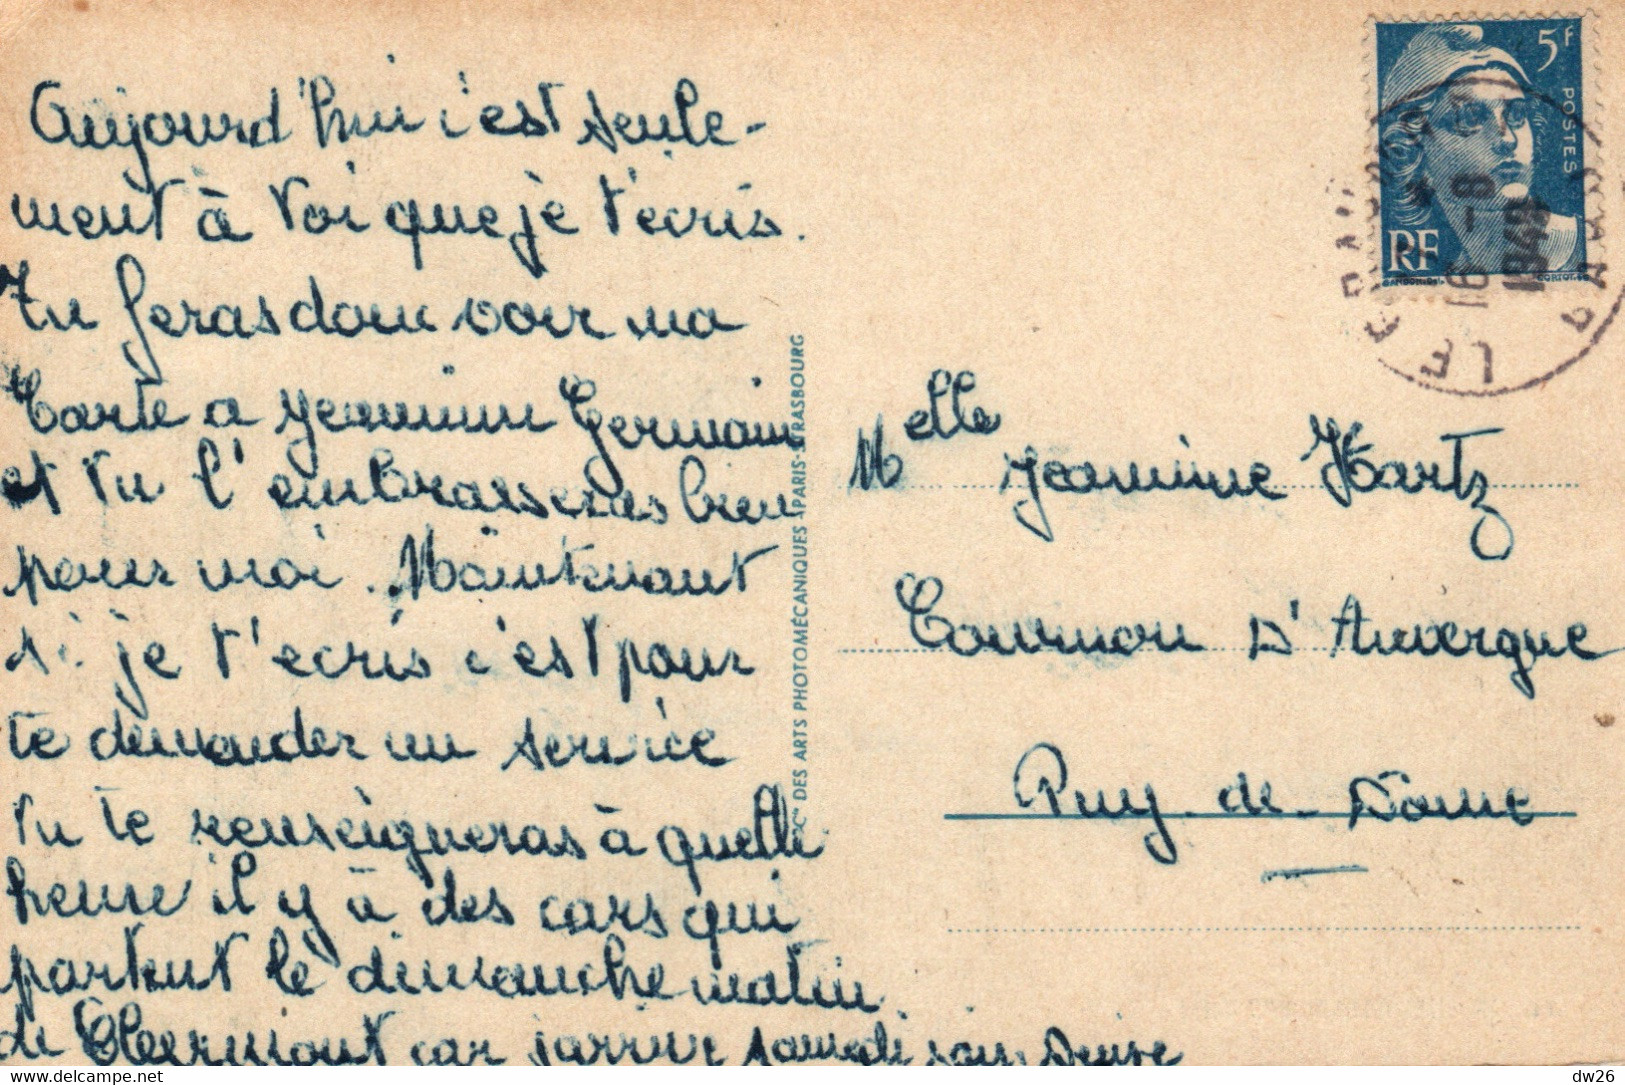 Aujourd'hui c'est seule-
ment à toi que je t'écris.
Tu feras donc voir ma
Carte a Jeannine Germain
et tu l'embrasseras bien
pour moi. Maintenant
si je t'écris c'est pour
te demander un service
tu te renseigneras à quelle
heure il y à des cars qui
partent le dimanche matin
de Clermont car j'arrive samedi soir
5F
POSTES
RF
GANDON
CORTOT
LE
16 -8
1949
Cie DES ARTS PHOTOMÉCANIQUES PARIS-STRASBOURG
Melle Jeannine Hartz
Cournon d'Auvergne
Puy-de-Dôme
dw26